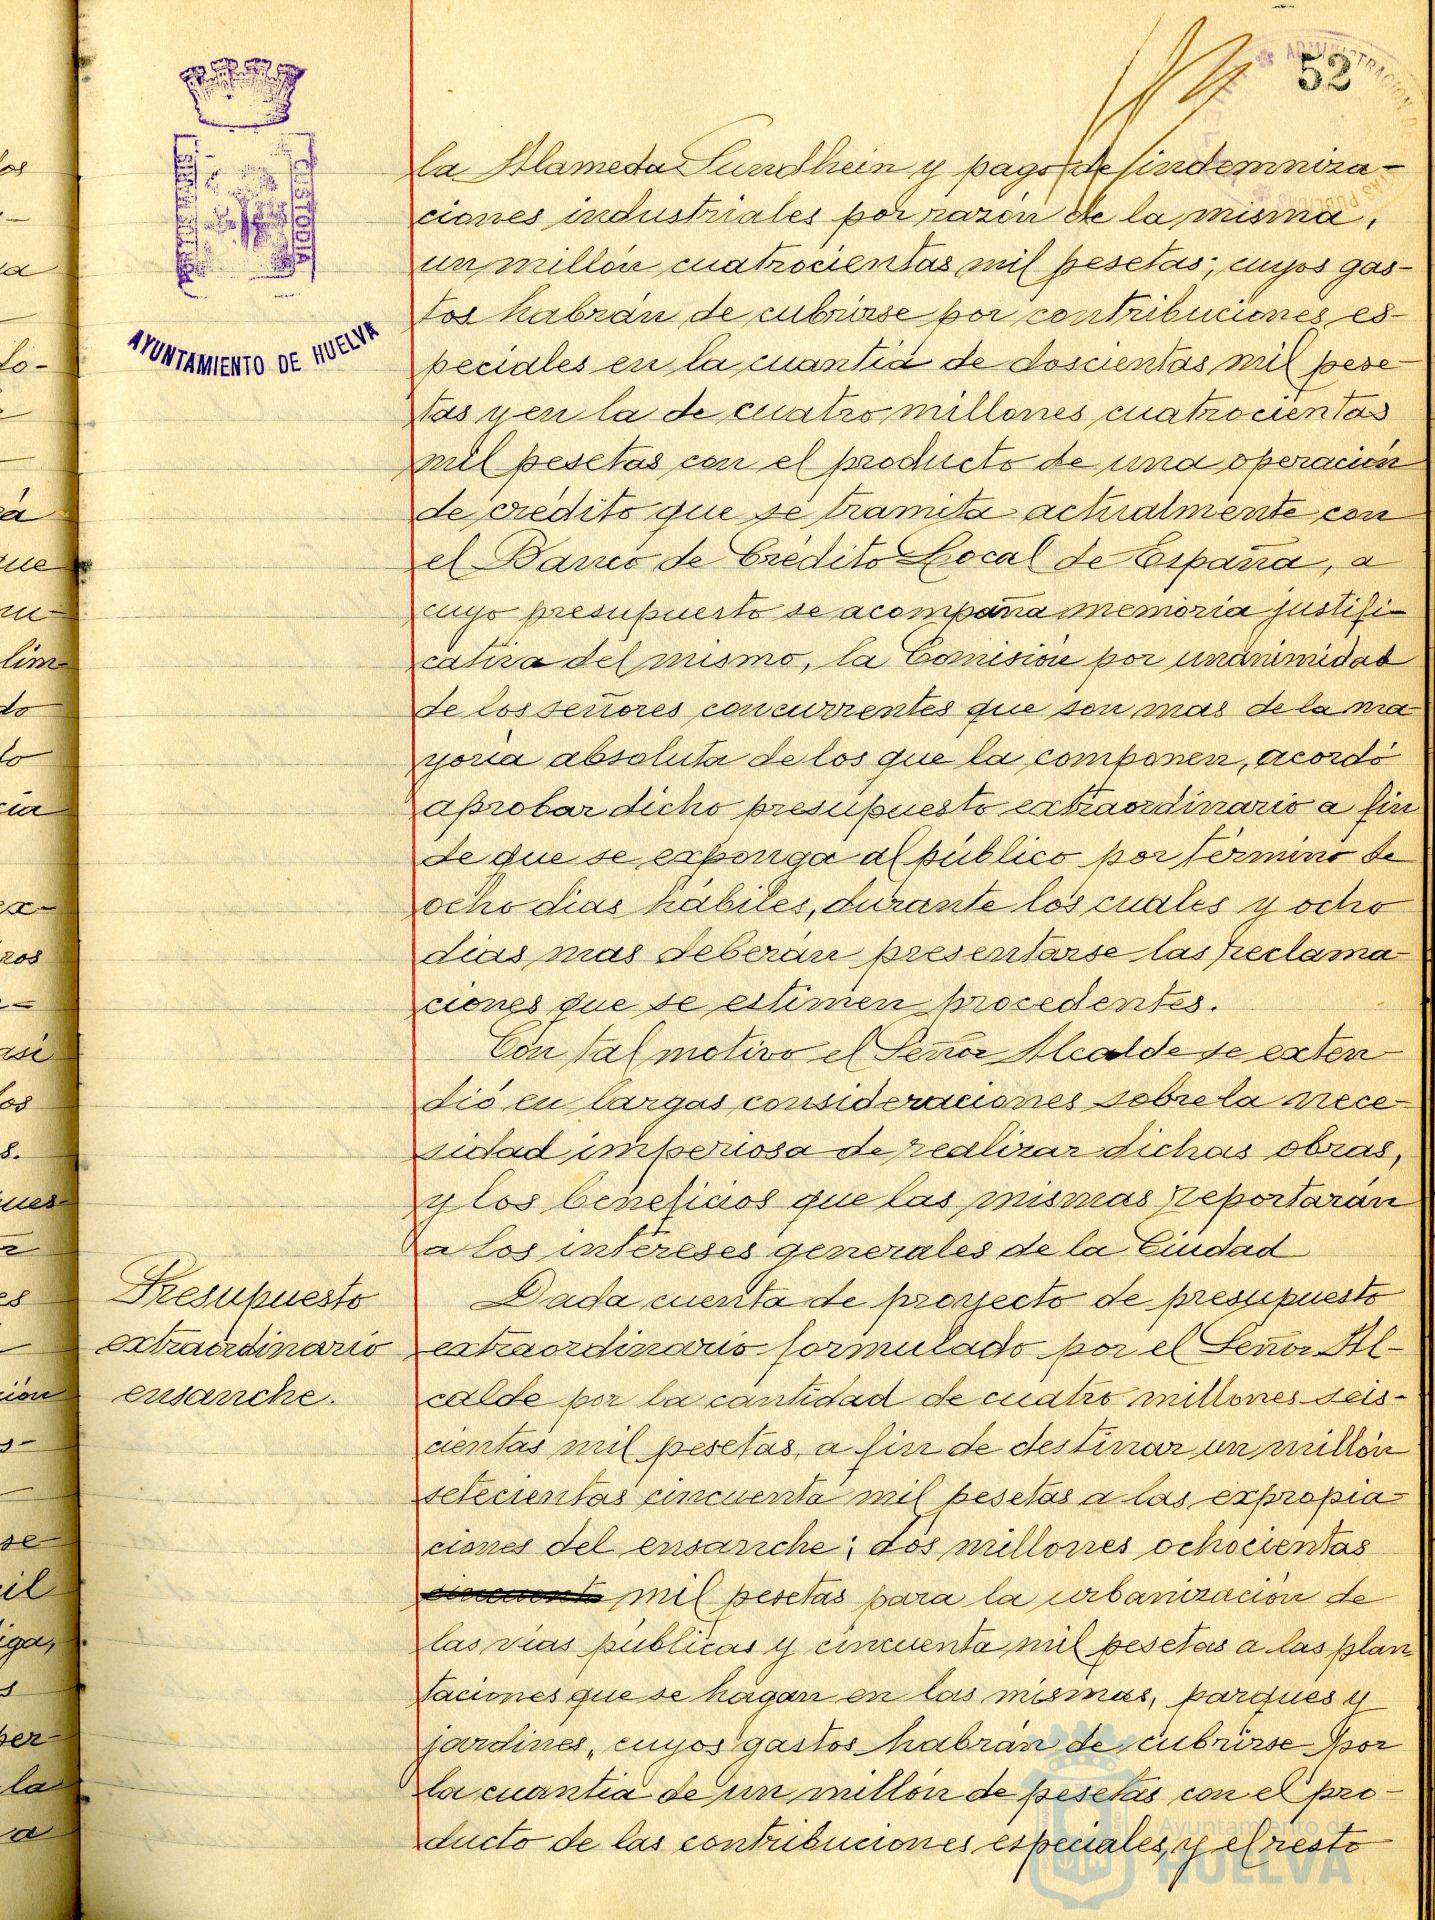 52
ADMINISTRACION DE
PORTUS MARIS
CUSTODIA
AYUNTAMIENTO DE HUELVA
la Alameda Sundhein y pago de indemniza-
ciones industriales por razón de la misma,
un millón cuatrocientas mil pesetas; cuyos gas-
tos habrán de cubrirse por contribuciones es-
peciales en la cuantia de doscientas mil pese-
tas y en la de cuatro millones cuatrocientas
mil pesetas con el producto de una operación
de crédito que se tramita actualmente con
el Banco de Crédito Local de España, a
cuyo presupuesto se acompaña memoria justifi-
cativa del mismo, la Comisión por unanimidad
de los señores concurrentes que son mas de la ma
yoria absoluta de los que la componen, acordó
aprobar dicho presupuesto extraordinario a fin
de que se exponga al público por término de
ocho dias hábiles, durante los cuales y ocho
dias mas deberán presentarse las reclama-
ciones que se estimen procedentes.
Con tal motivo el Señor Alcalde se exten-
dió en largas consideraciones sobre la nece-
sidad imperiosa de realizar dichas obras,
y los beneficios que las mismas reportarán
a los intereses generales de la Ciudad
Presupuesto
extraordinario
ensanche.
Dada cuenta de proyecto de presupuesto
extraordinario formulado por el Señor Al-
calde por la cantidad de cuatro millones seis-
cientas mil pesetas, a fin de destinar un millón
setecientas cincuenta mil pesetas a las expropia-
ciones del ensanche; dos millones ochocientas
cincuenta mil pesetas para la urbanización de
las vias públicas y cincuenta mil pesetas a las plan-
taciones que se hagan en las mismas, parques y
jardines, cuyos gastos habrán de cubrirse por
la cuantia de un millón de pesetas con el pro-
ducto de las contribuciones especiales, y el resto
Ayuntamiento de
HUELVA